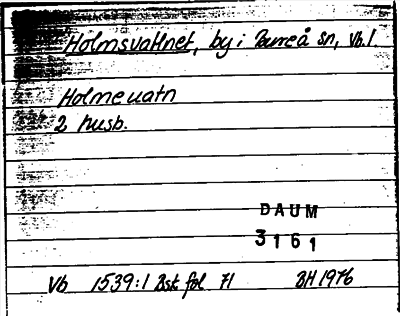 Holmsvattnet, by i Bureå sn, Vb.l.
Holmeuatn
2 husb.
DAUM
3161
Vb 1539:1 Bsk fol 71 BH 1976